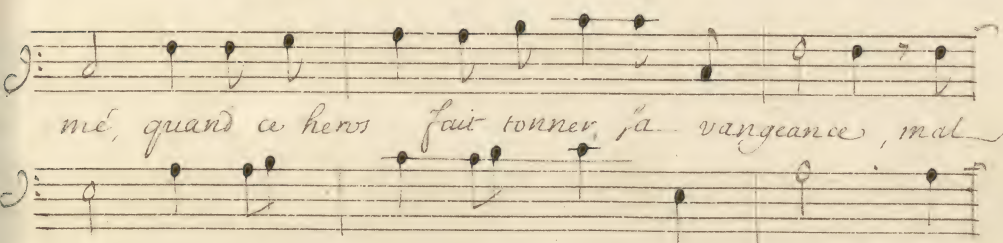 mé, quand ce heros fait tonner sa vangeance, mal